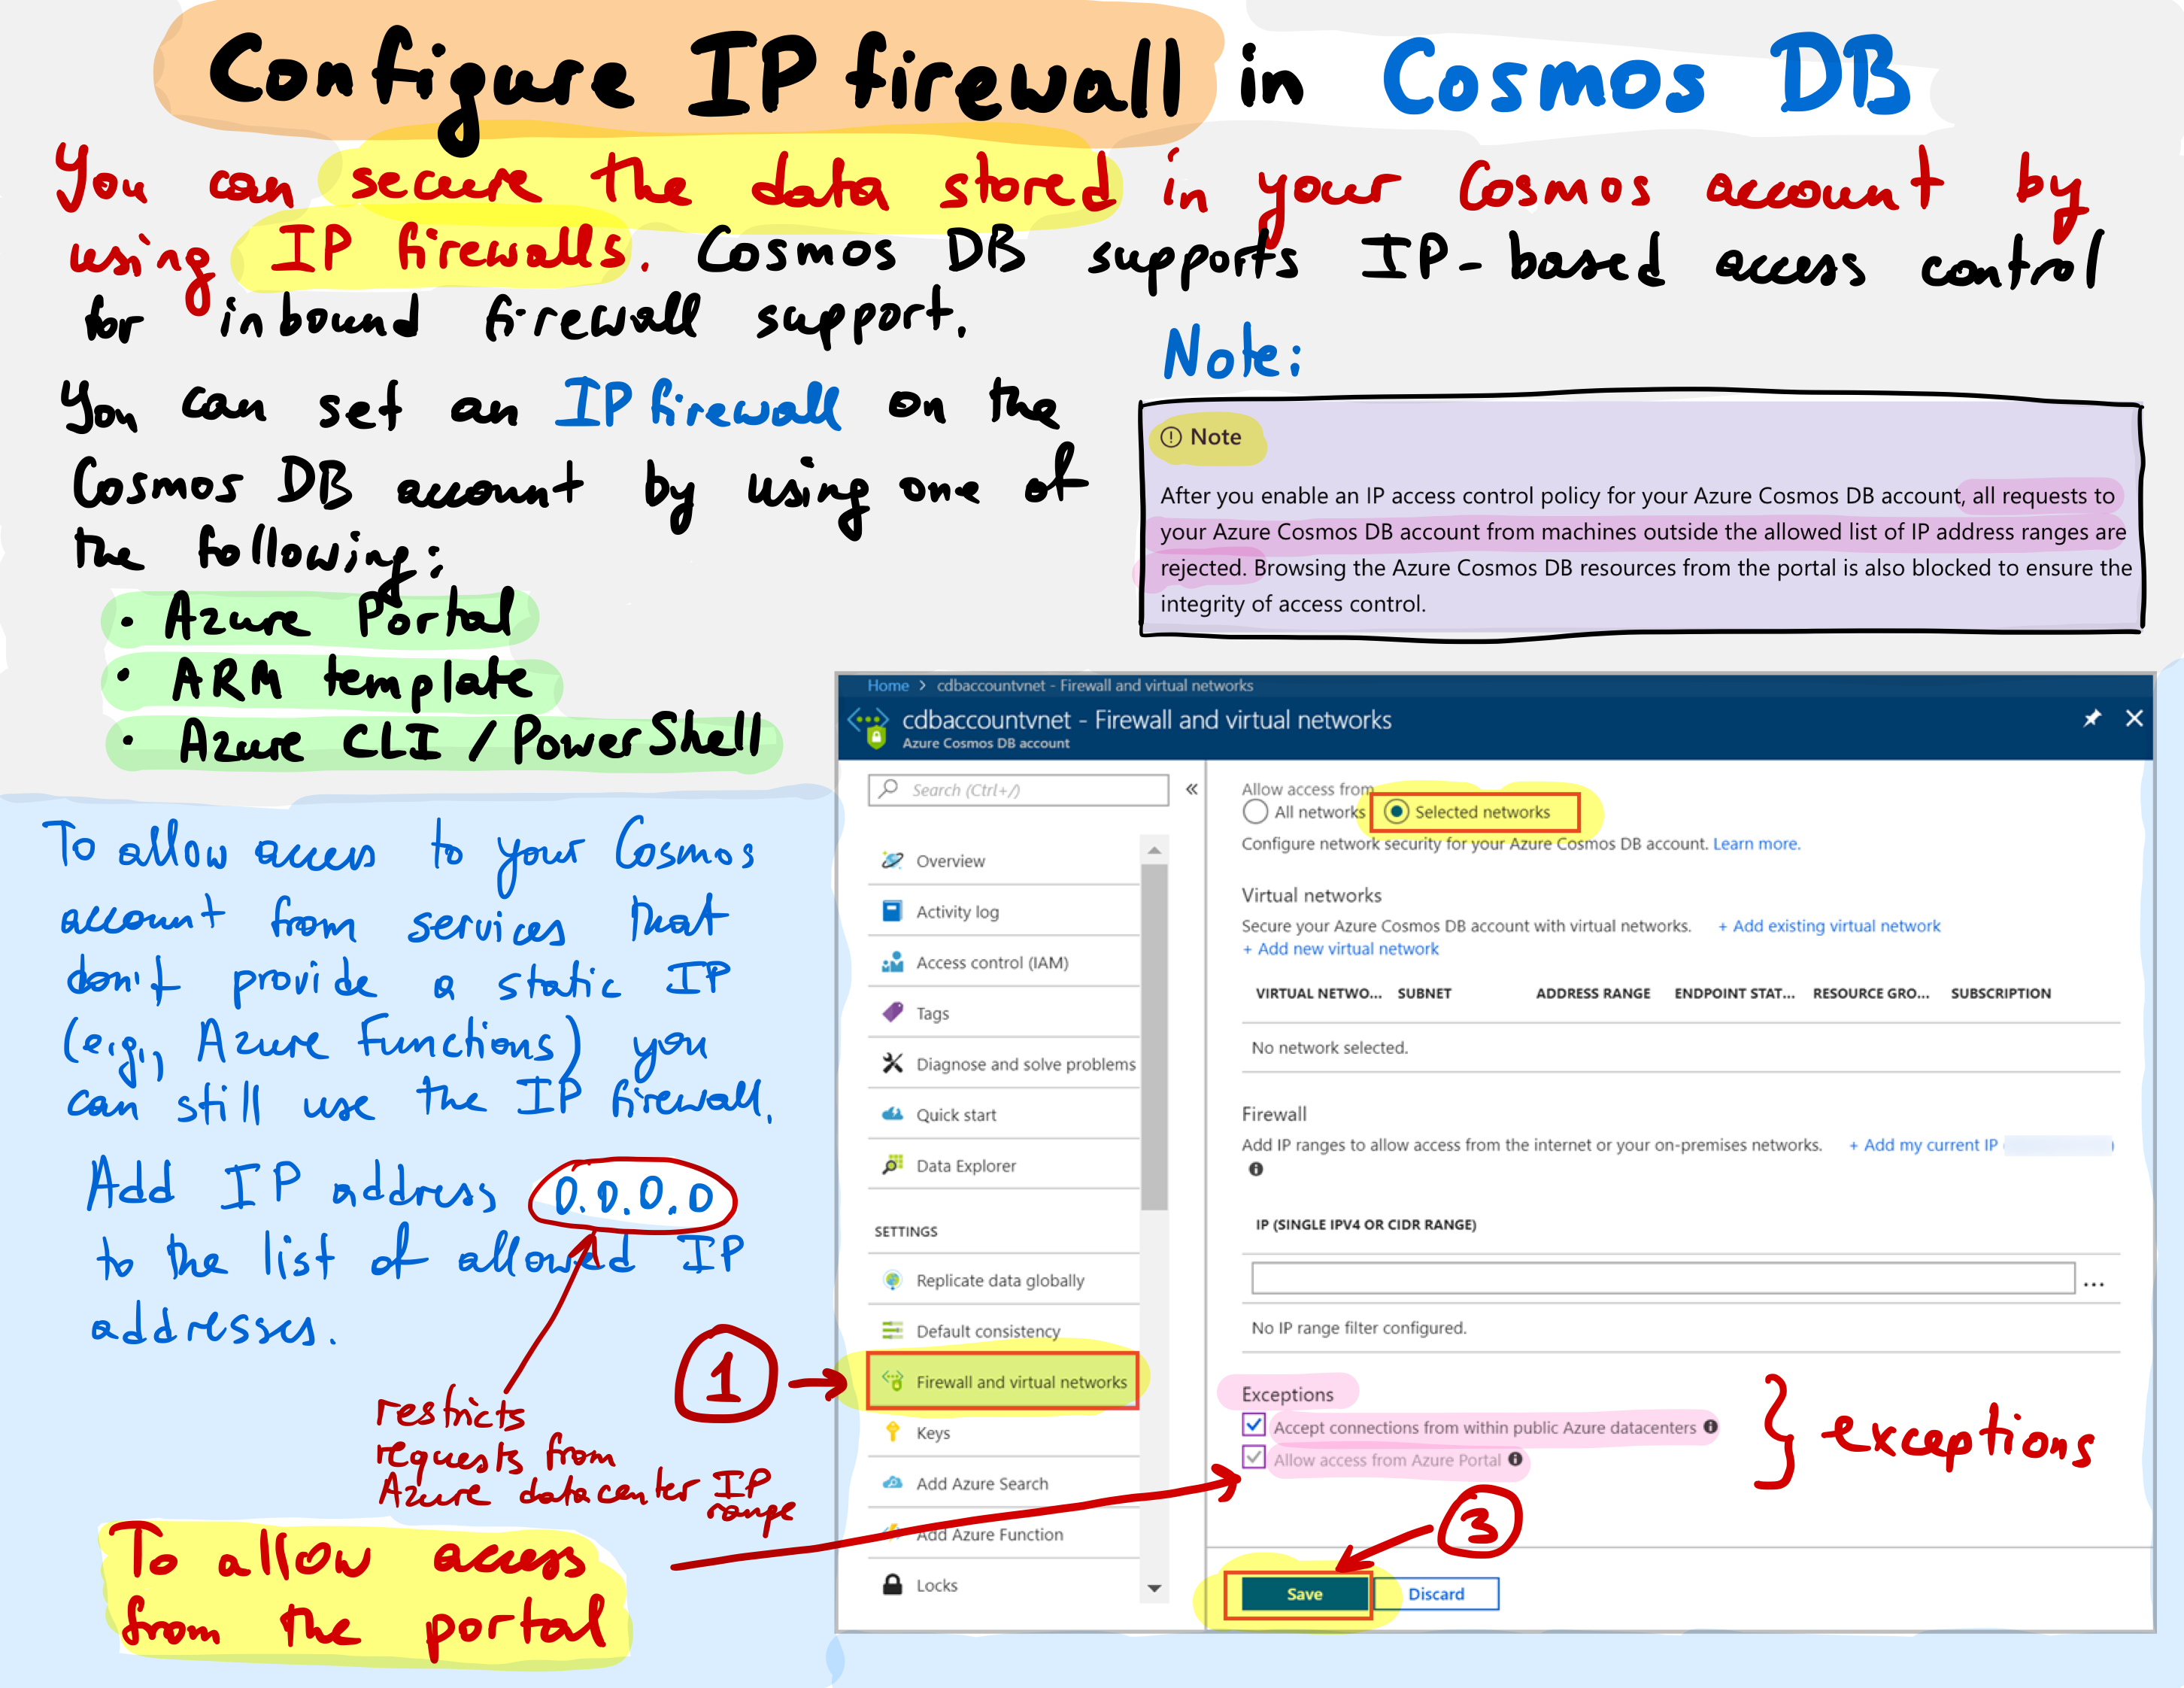 Configure IP firewall in Cosmos DB
You can secure the data stored in your Cosmos account by
using IP firewalls. Cosmos DB supports IP-based access control
for inbound firewall support.
You can set an IP firewall on the
Cosmos DB account by using one of
the following:
• Azure Portal
• ARM template
• Azure CLI / PowerShell
Note:
Note
After you enable an IP access control policy for your Azure Cosmos DB account, all requests to
your Azure Cosmos DB account from machines outside the allowed list of IP address ranges are
rejected. Browsing the Azure Cosmos DB resources from the portal is also blocked to ensure the
integrity of access control.
To allow access to your Cosmos
account from services that
don't provide a static IP
(e.g., Azure Functions) you
can still use the IP firewall.
Add IP address 0.0.0.0
to the list of allowed IP
addresses.
restricts
requests from
Azure datacenter IP
range
To allow access
from the portal
1
Home > cdbaccountvnet - Firewall and virtual networks
cdbaccountvnet - Firewall and virtual networks
Azure Cosmos DB account
Search (Ctrl+/)
«
Overview
Activity log
Access control (IAM)
Tags
Diagnose and solve problems
Quick start
Data Explorer
SETTINGS
Replicate data globally
Default consistency
Firewall and virtual networks
Keys
Add Azure Search
Add Azure Function
Locks
Allow access from
All networks Selected networks
Configure network security for your Azure Cosmos DB account. Learn more.
Virtual networks
Secure your Azure Cosmos DB account with virtual networks. + Add existing virtual network
+ Add new virtual network
VIRTUAL NETWO... SUBNET ADDRESS RANGE ENDPOINT STAT... RESOURCE GRO... SUBSCRIPTION
No network selected.
Firewall
Add IP ranges to allow access from the internet or your on-premises networks. + Add my current IP ( )
IP (SINGLE IPV4 OR CIDR RANGE)
...
No IP range filter configured.
Exceptions
Accept connections from within public Azure datacenters
Allow access from Azure Portal
} exceptions
3
Save Discard